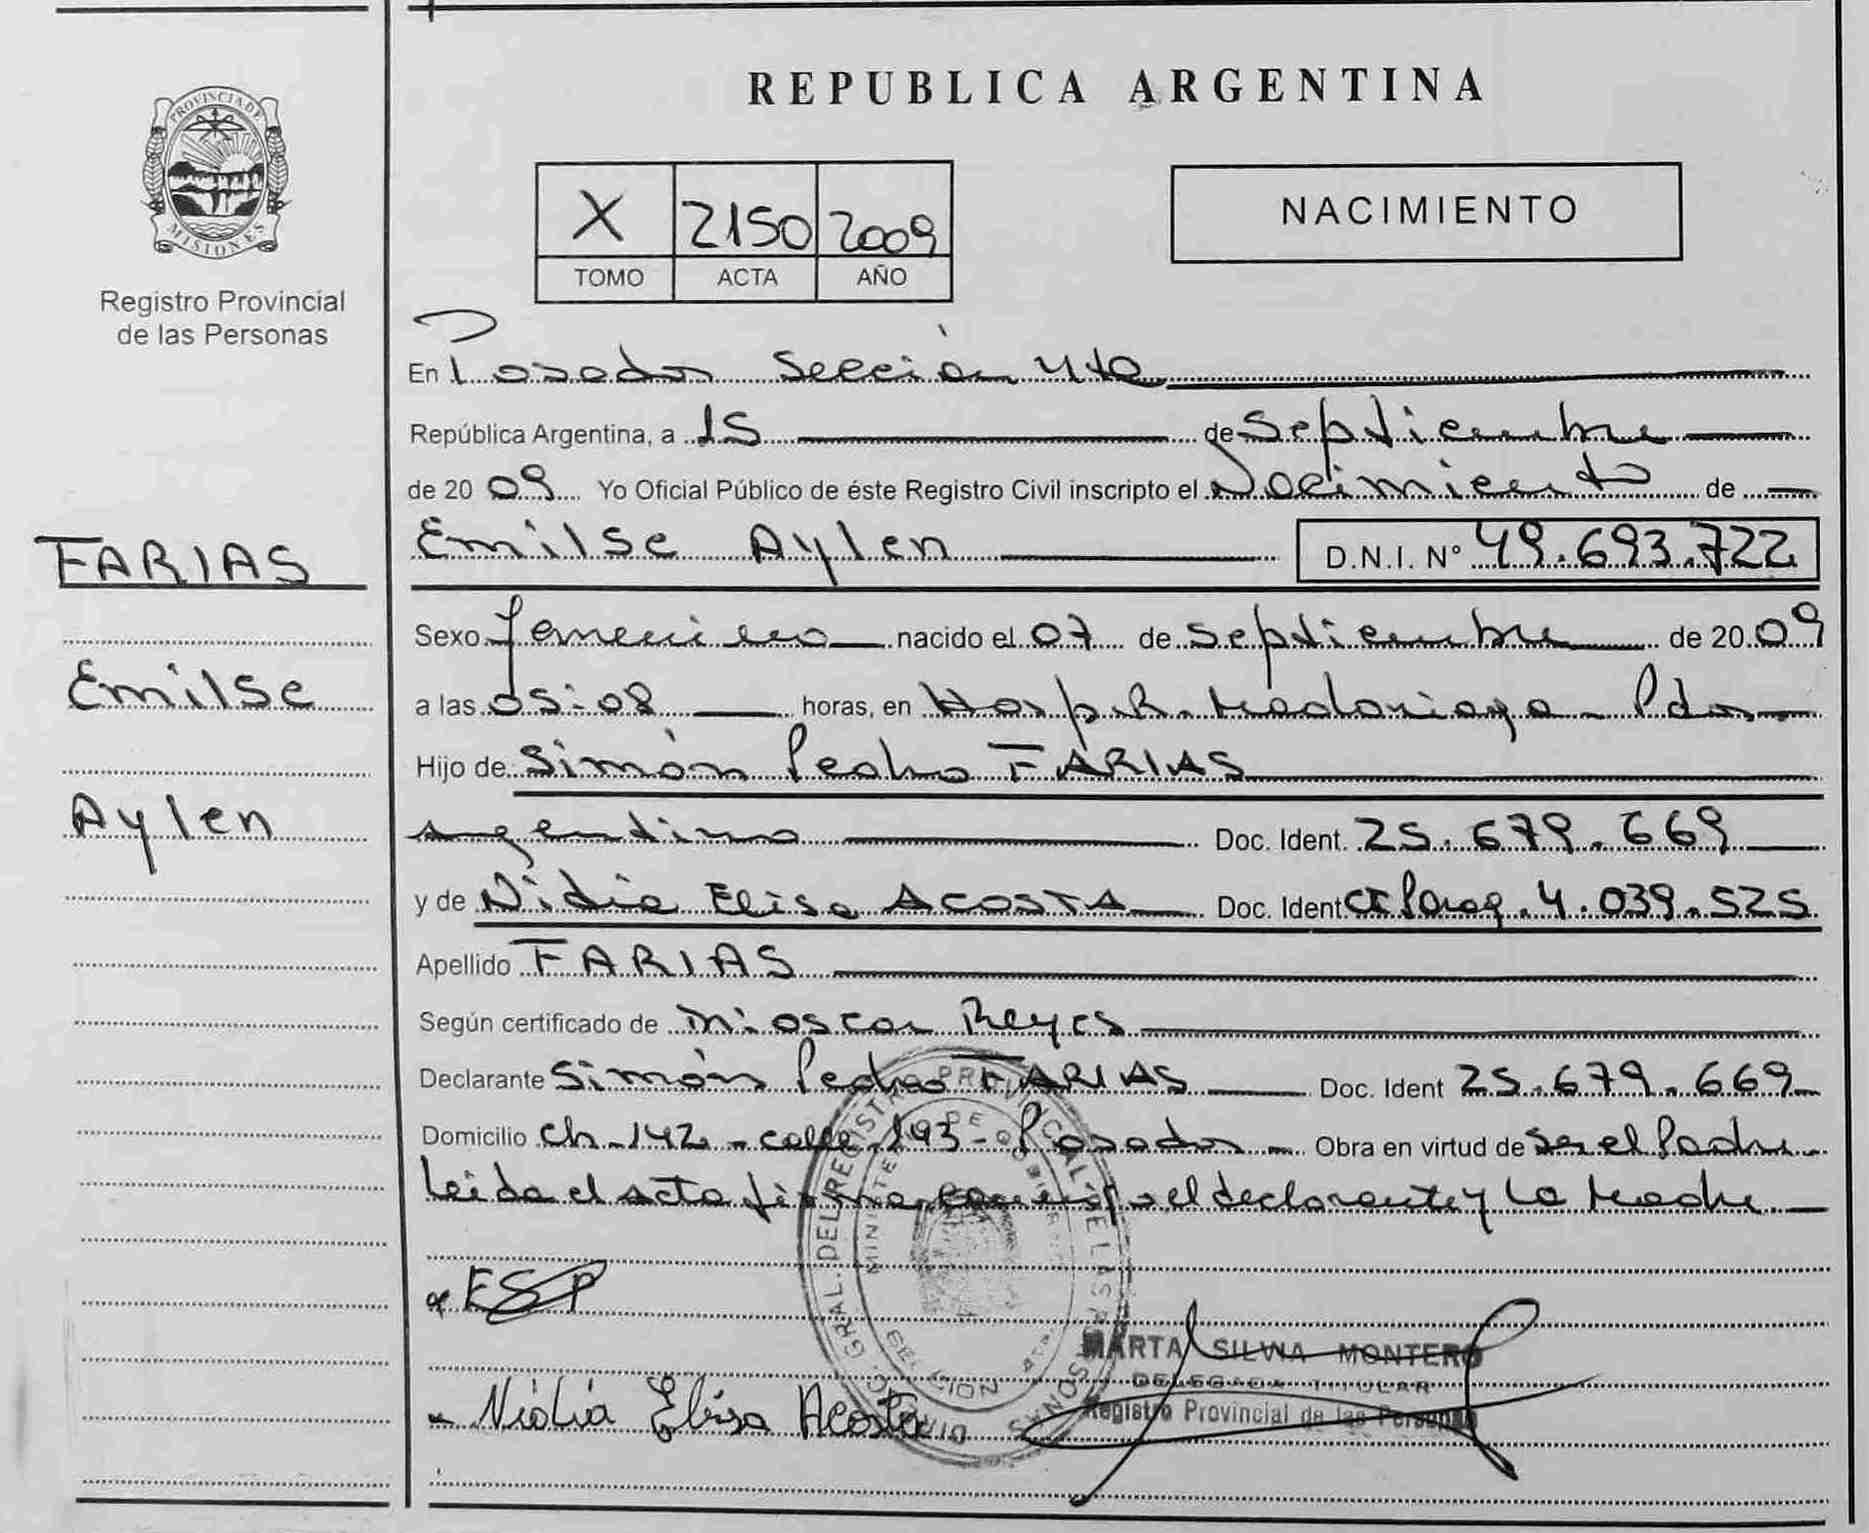 PROVINCIA DE
MISIONES
Registro Provincial
de las Personas
FARIAS
Emilse
Aylen
REPUBLICA ARGENTINA
X 2150 2009
TOMO ACTA AÑO
NACIMIENTO
En Posadas Sección 4ta
República Argentina, a 15 de Septiembre
de 2009 Yo Oficial Público de éste Registro Civil inscripto el Nacimiento de
Emilse Aylen D.N.I. Nº 49.693.722
Sexo femenino nacido el 07 de Septiembre de 2009
a las 05:08 horas, en Hosp. R. Madariaga - Pdas
Hijo de Simón Pedro FARIAS
argentino Doc. Ident. 25.679.669
y de Nidia Elisa ACOSTA Doc. Ident CI Parag. 4.039.525
Apellido FARIAS
Según certificado de Oscar Reyes
Declarante Simón Pedro FARIAS Doc. Ident 25.679.669
Domicilio Ch-142 - calle 193 - Posadas - Obra en virtud de Ser el Padre
Leida el acta firma conmigo el declarante y La Madre
FSP
Nidia Elisa Acosta
DIREC. GRAL. DEL REGISTRO PROVINCIAL DE LAS PERSONAS
MINISTERIO DE GOBIERNO
MARTA SILVIA MONTERO
DELEGADA TITULAR
Registro Provincial de las Personas